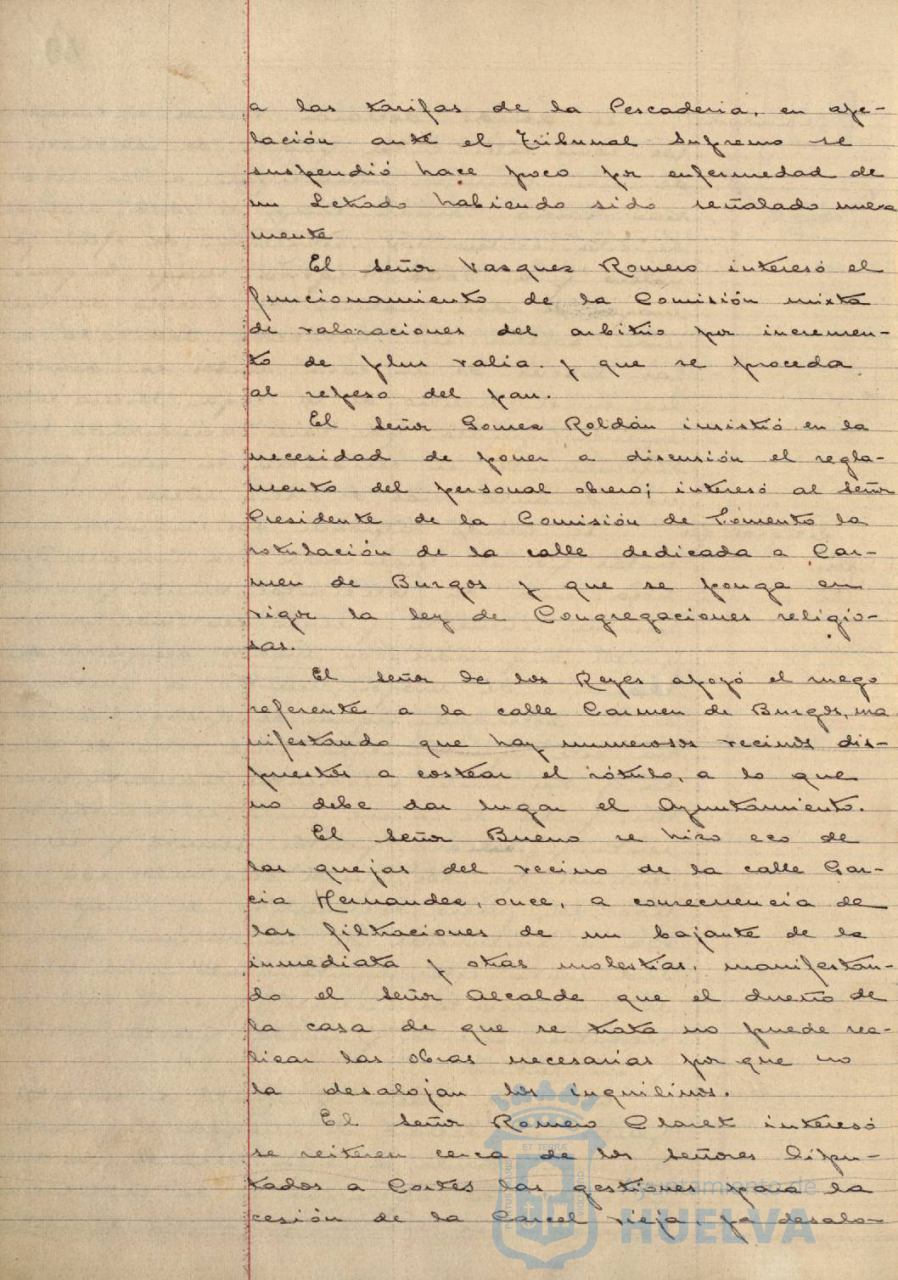 a las tarifas de la Pescaderia, en ape-
lación ante el Tribunal Supremo se
suspendió hace poco por enfermedad de
un Letrado habiendo sido señalado nueva
mente
El señor Vasquez Romero interesó el
funcionamiento de la Comisión mixta
de valoraciones del arbitrio por incremen-
to de plus valia y que se proceda
al repeso del pan.
El señor Gomez Roldán insistió en la
necesidad de poner a discusión el regla-
mento del personal obrero; interesó al señor
Presidente de la Comisión de Fomento la
rotulación de la calle dedicada a Car-
men de Burgos y que se ponga en
vigor la ley de Congregaciones religio-
sas.
El señor de los Reyes apoyó el ruego
referente a la calle Carmen de Burgos, ma
nifestando que hay numerosos vecinos dis-
puestos a costear el rótulo, a lo que
no debe dar lugar el Ayuntamiento.
El señor Bueno se hizo eco de
las quejas del vecino de la calle Gar-
cia Hernandez, once, a consecuencia de
las filtraciones de un bajante de la
inmediata y otras molestias, manifestan-
do el señor Alcalde que el dueño de
la casa de que se trata no puede rea-
lizar las obras necesarias por que no
la desalojan los inquilinos.
El señor Romero Claret interesó
se reiteren cerca de los señores Dipu-
tados a Cortes las gestiones para la
cesión de la Carcel vieja, ya desalo-
Ayuntamiento de
HUELVA